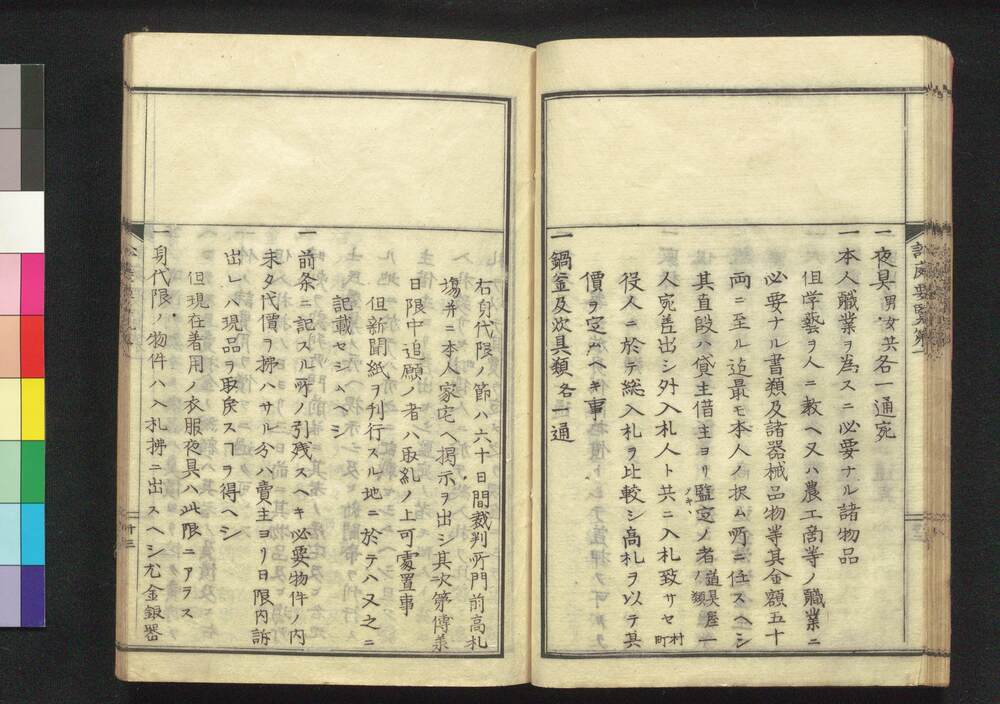 訟庭要覧第一
一夜具 男女共各一通宛
一本人職業ヲ為スニ必要ナル諸物品
但学藝ヲ人ニ教ヘ又ハ農工商等ノ職業ニ
必要ナル書類及諸器械品物等其金額五十
両ニ至ル迠最モ本人ノ択ム所ニ任スヘシ
其直段ハ貸主借主ヨリ監定ノ者 道具屋一ノ類
メキヽ
人宛差出シ外入札人ト共ニ入札致サセ 村町
役人ニ於テ総入札ヲ比較シ高札ヲ以テ其
價ヲ定ムヘキ事
一鍋釜及次具類 各一通
右身代限ノ節ハ六十日間裁判所門前高札
塲并ニ本人家宅ヘ掲示ヲ出シ其次第傳美
日限中追願ノ者ハ取糺ノ上可處置事
但新聞紙ヲ刊行スル地ニ於テハ又之ニ
記載セシムヘシ
一前条ニ記スル所ノ引残スヘキ必要物件ノ内
未タ代價ヲ拂ハサル分ハ賣主ヨリ日限内訴
出レハ現品ヲ取戻スヿヲ得ヘシ
但現在着用ノ衣服夜具ハ此限ニアラス
一身代限ノ物件ハ入札拂ニ出スヘシ尤金銀器
十三